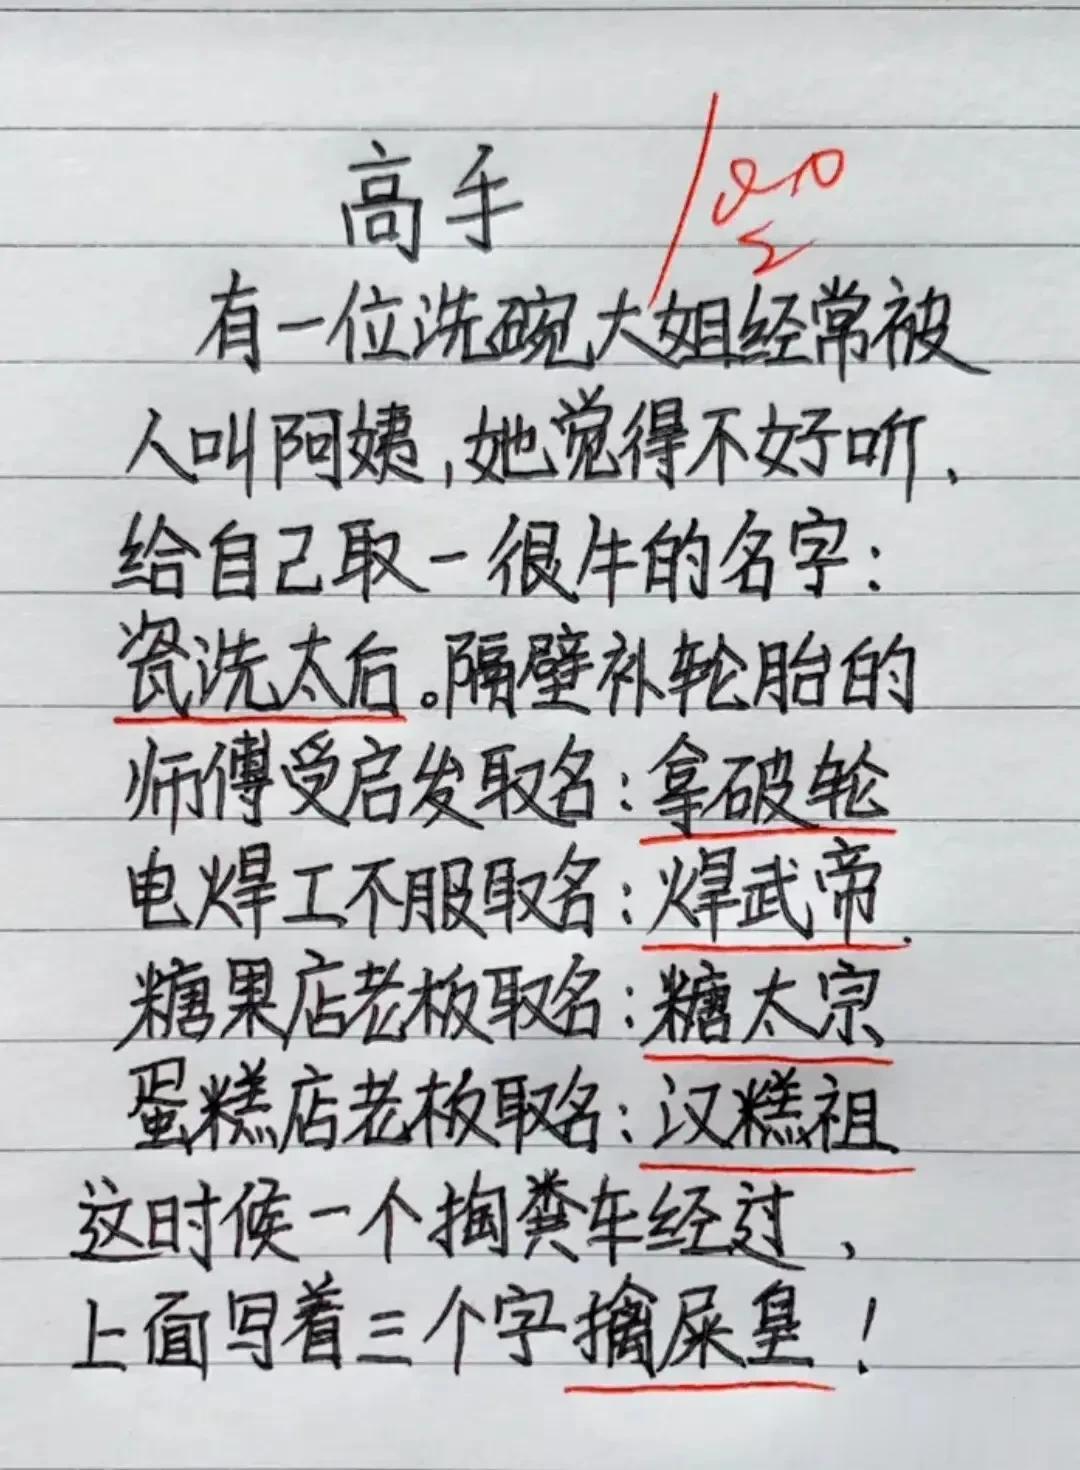 高手
100
有一位洗碗大姐经常被
人叫阿姨,她觉得不好听、
给自己取一很牛的名字:
瓷洗太后。隔壁补轮胎的
师傅受启发取名:拿破轮
电焊工不服取名:焊武帝.
糖果店老板取名:糖太宗
蛋糕店老板取名:汉糕祖
这时候一个掏粪车经过、
上面写着三个字擒屎皇!